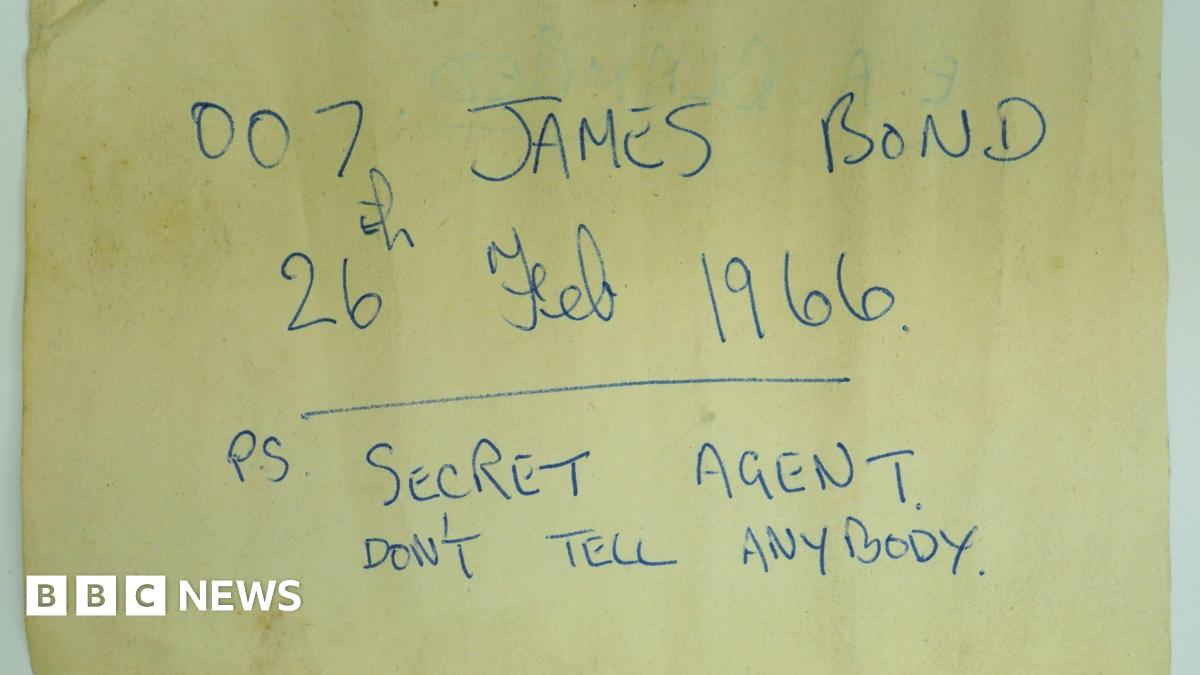 007 JAMES BOND
26th Feb 1966.
P.S. SECRET AGENT.
DON'T TELL ANYBODY.
BBC NEWS